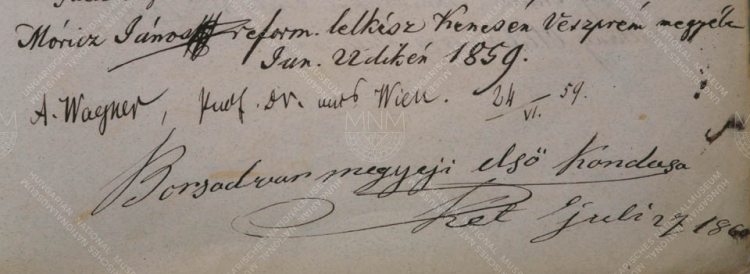 Móricz János reform. lelkész Kenesén Veszprém megyébe
Jun. 22dikén 1859.
A. Wagner, Prof. Dr. aus Wien. 24/VI. 59.
Borsodvarmegyeji első Kondása
Juli 27 186
MNM